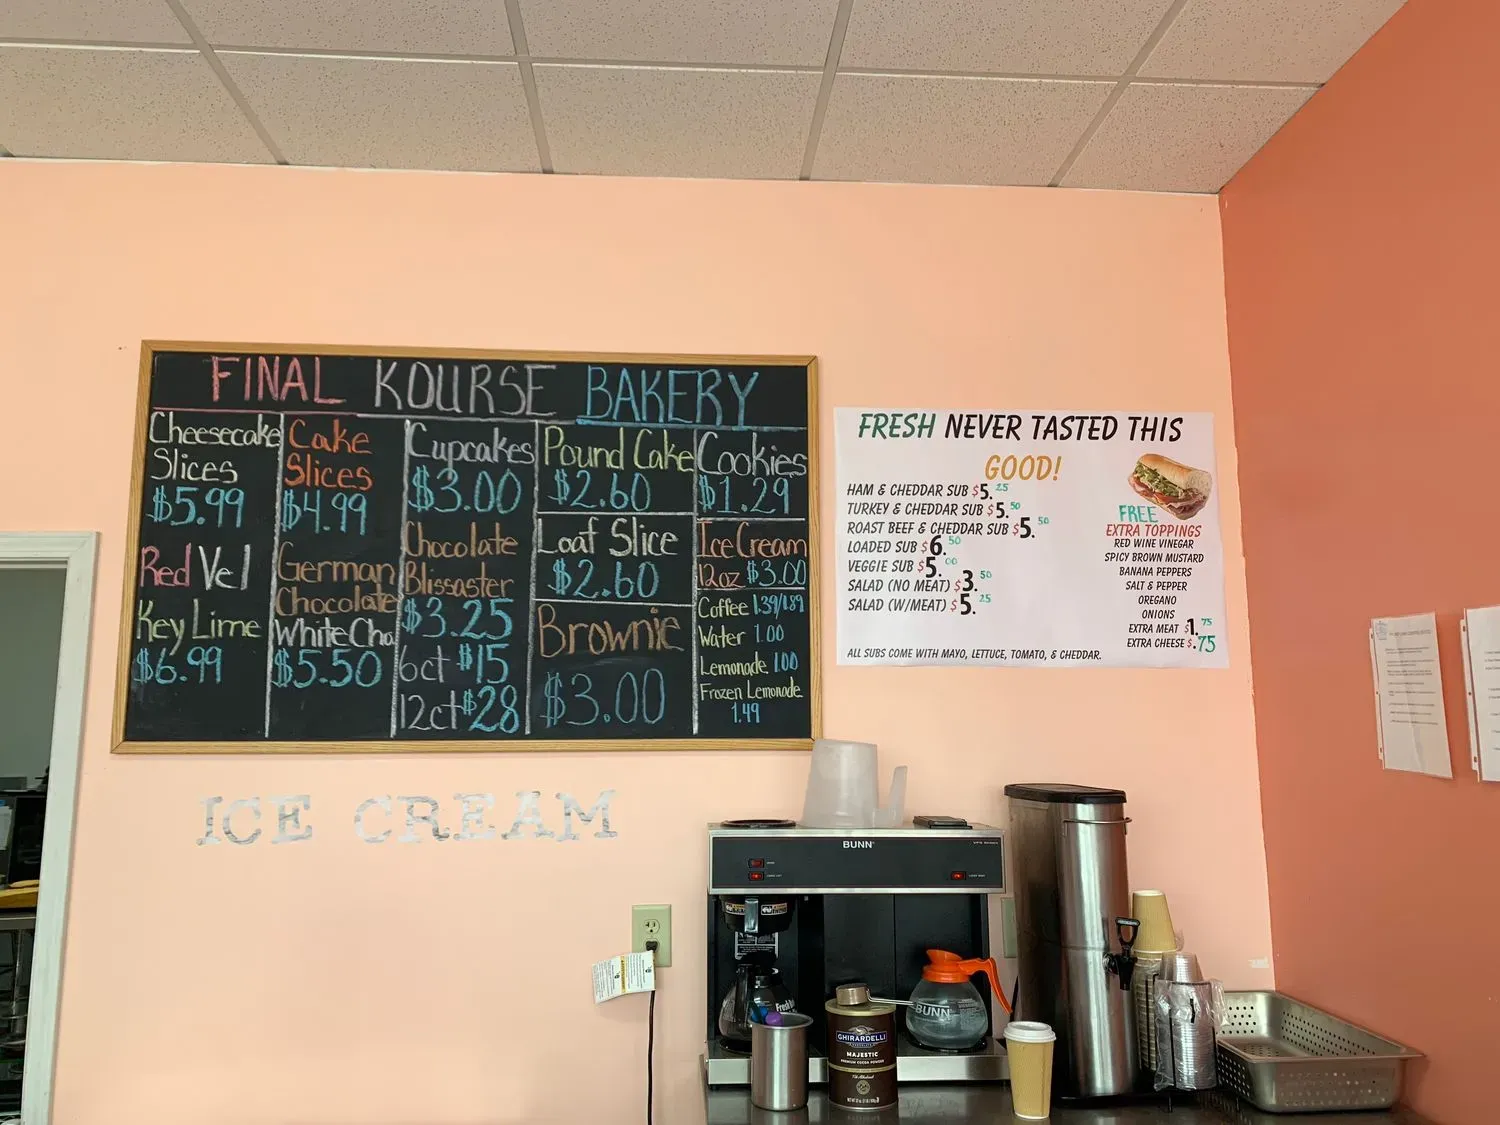 FINAL KOURSE BAKERY
Cheesecake
Slices
$5.99
Red Vel
Key Lime
$6.99
Cake
Slices
$4.99
German
Chocolate
White Cho
$5.50
Cupcakes
$3.00
Chocolate
Blissaster
$3.25
6ct $15
12ct $28
Pound Cake
$2.60
Loaf Slice
$2.60
Brownie
$3.00
Cookies
$1.29
Ice Cream
12oz $3.00
Coffee 1.39/1.89
Water 1.00
Lemonade 1.00
Frozen Lemonade
1.49
FRESH NEVER TASTED THIS
GOOD!
HAM & CHEDDAR SUB $5.25
TURKEY & CHEDDAR SUB $5.50
ROAST BEEF & CHEDDAR SUB $5.50
LOADED SUB $6.50
VEGGIE SUB $5.00
SALAD (NO MEAT) $3.50
SALAD (W/MEAT) $5.25
ALL SUBS COME WITH MAYO, LETTUCE, TOMATO, & CHEDDAR.
FREE
EXTRA TOPPINGS
RED WINE VINEGAR
SPICY BROWN MUSTARD
BANANA PEPPERS
SALT & PEPPER
OREGANO
ONIONS
EXTRA MEAT $1.75
EXTRA CHEESE $.75
ICE CREAM
BUNN
BUNN
GHIRARDELLI
MAJESTIC
PREMIUM COCOA POWDER